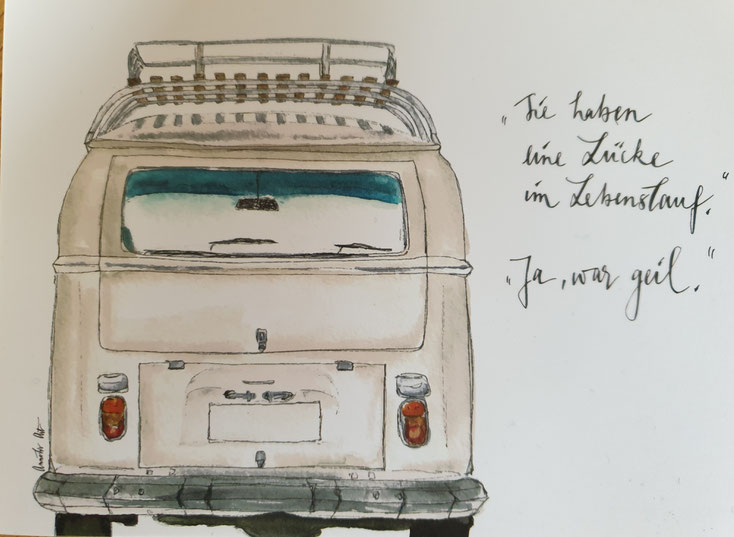 „Sie haben
eine Lücke
im Lebenslauf."
„Ja, war geil."